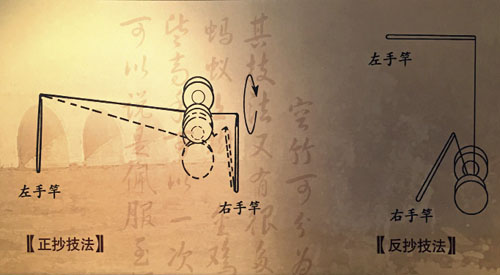 空竹可分为
其技法又有很多
蚂蚁
以一次
可以说是佩服至
左手竿
右手竿
【正抄技法】
左手竿
右手竿
【反抄技法】